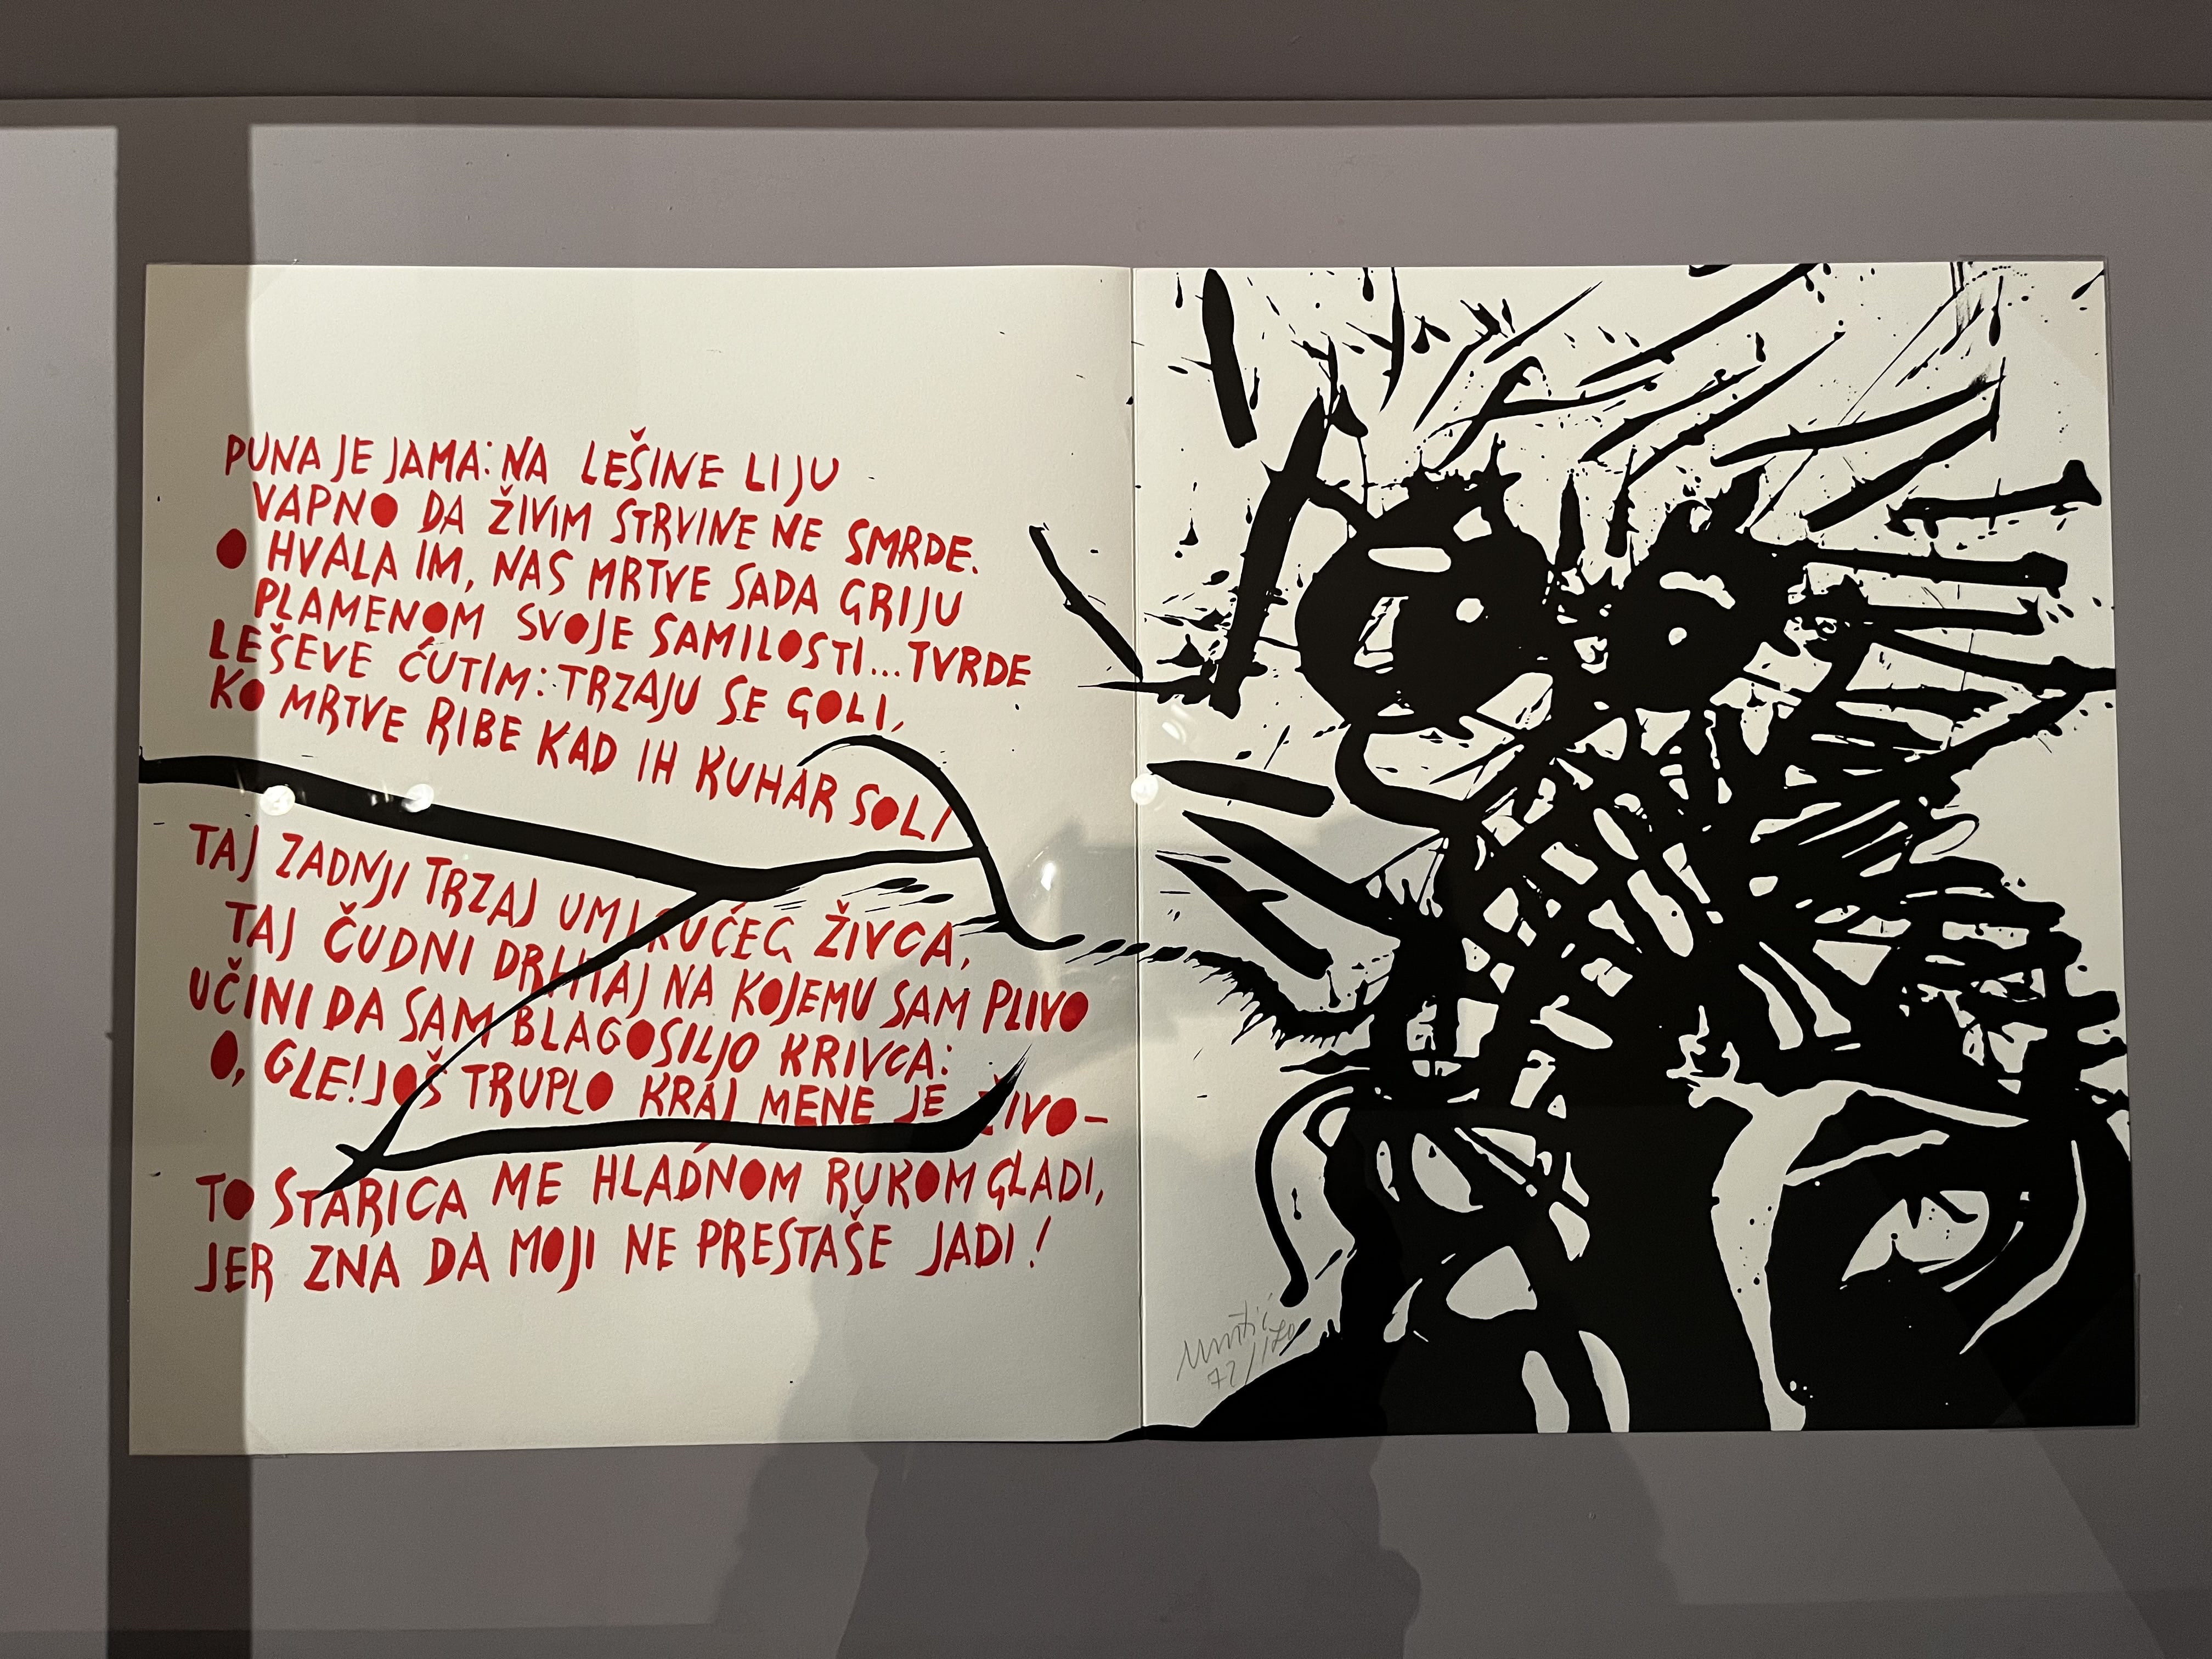 PUNA JE JAMA: NA LEŠINE LIJU
VAPNO DA ŽIVIM STRVINE NE SMRDE.
O HVALA IM, NAS MRTVE SADA GRIJU
PLAMENOM SVOJE SAMILOSTI... TVRDE
LEŠEVE ĆUTIM: TRZAJU SE GOLI,
KO MRTVE RIBE KAD IH KUHAR SOLI
TAJ ZADNJI TRZAJ UMIRUĆEG ŽIVCA,
TAJ ČUDNI DRHTAJ NA KOJEMU SAM PLIVO
UČINI DA SAM BLAGOSILJO KRIVCA:
O, GLE! JOŠ TRUPLO KRAJ MENE JE ŽIVO-
TO STARICA ME HLADNOM RUKOM GLADI,
JER ZNA DA MOJI NE PRESTAŠE JADI!
72/120